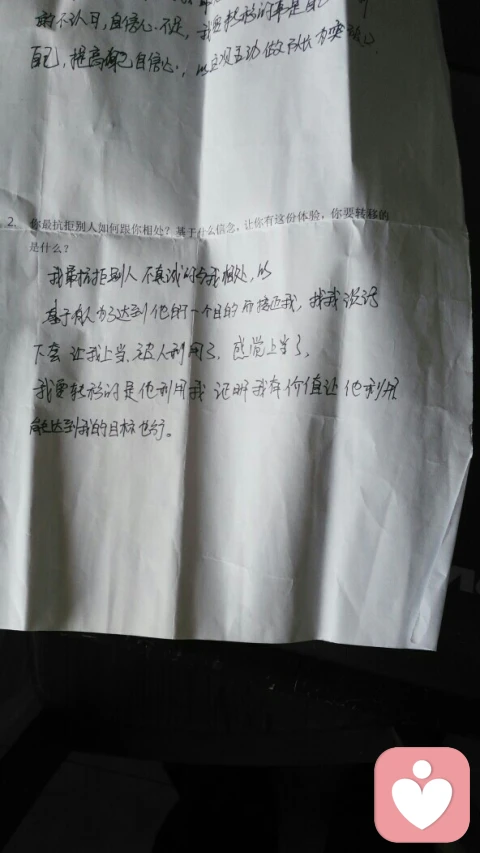 的不认可,自信心不足,我要转移的事是自己
自己,提高自己自信心,以实现互动做
2. 你最抗拒别人如何跟你相处?基于什么信念,让你有这份体验,你要转移的
是什么?
我最抗拒别人不真诚的与我相处,以
基于别人为了达到他的一个目的而接近我,找我说话
下套让我上当、被人利用了,感觉上当了,
我要转移的是他利用我证明我有价值让他利用
能达到我的目标也行。